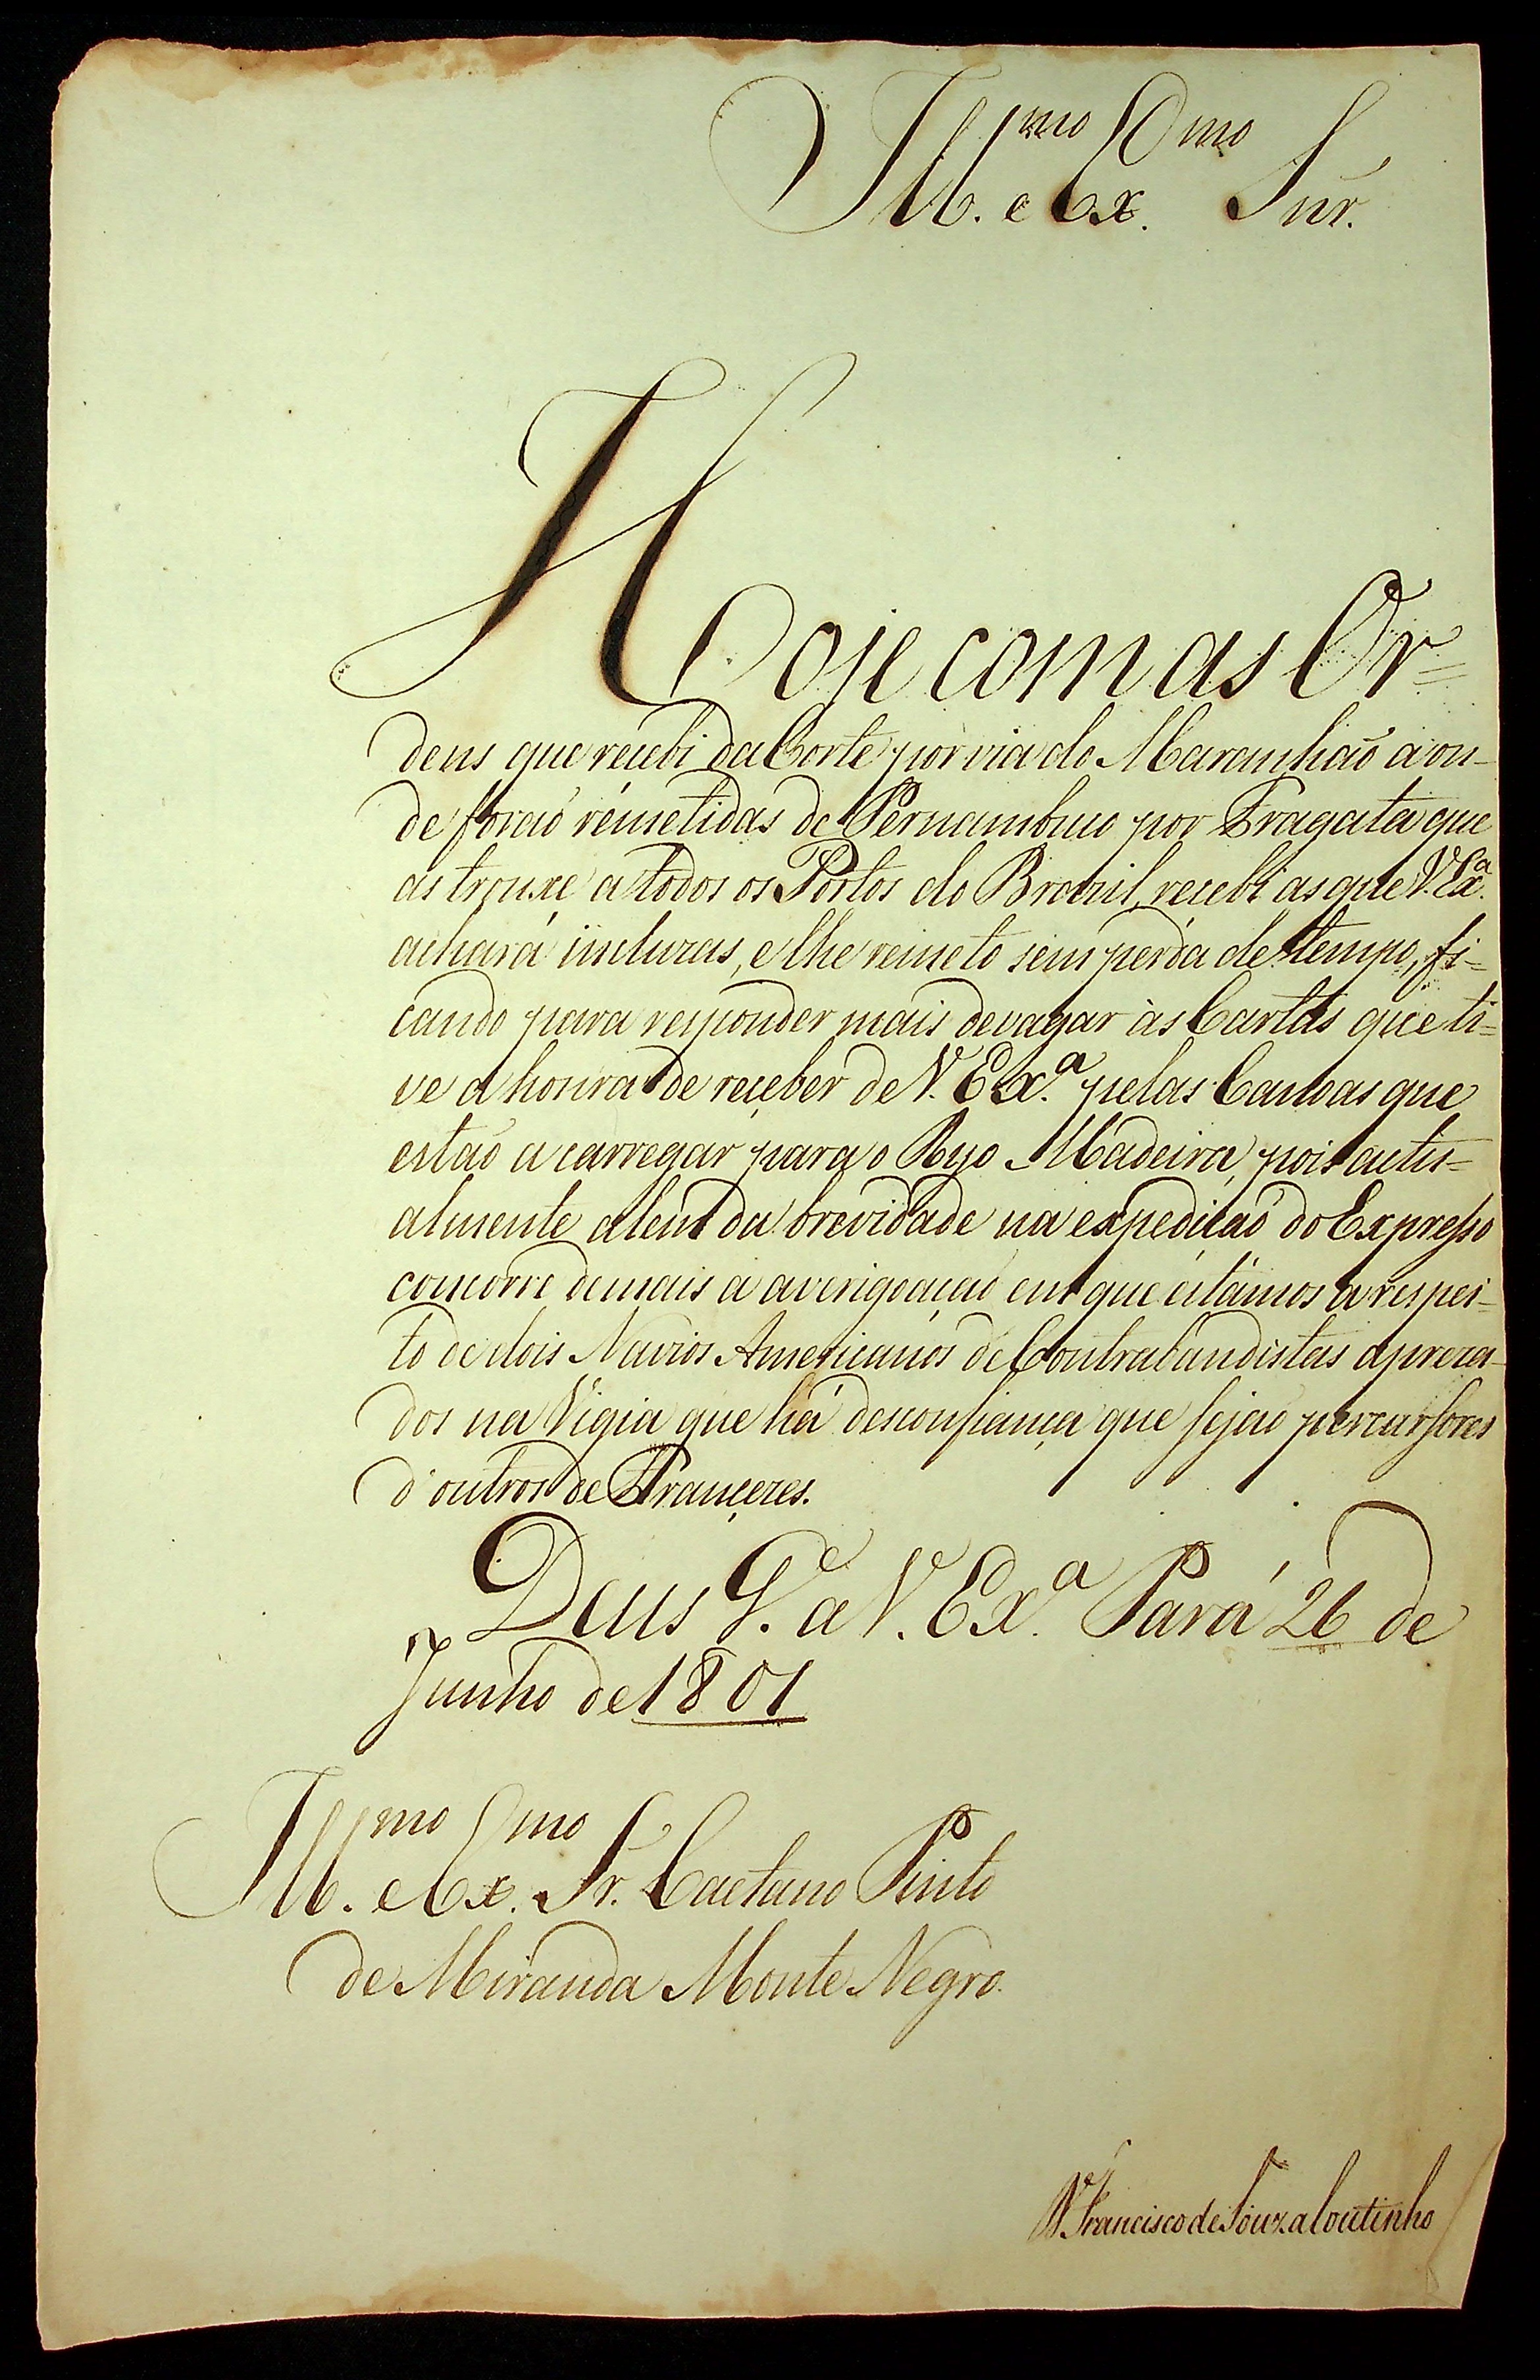 Ill.mo e Ex.mo Snr.
Hoje com as Or=
dens que recebi da Corte por via do Maranhaõ aon-
de foraõ remetidas de Pernambuco por Fragata que
as trouxe a todos os Portos do Brazil, recebi as que V. Ex.a
achará incluzas, e lhe remeto sem perda de tempo, fi=
cando para responder mais devagar às Cartas que ti=
ve a honra de receber de V. Ex.a pelas Canoas que
estaõ a carregar para o Ryo Madeira, pois actu=
almente alem da brevidade na expediçaõ do Expresso
concorre demais a averigoaçaõ em que estâmos a respei=
to de dois Navios Americanos de Contrabandistas apreza-
dos na Vigia que há desconfiança que sejaõ percursores
d'outros de Françezes.
Deus G.e a V. Ex.a Pará 26 de
Junho de 1801
Ill.mo e Ex.mo Sr. Caetano Pinto
de Miranda Monte Negro.
D. Francisco de Souza Coutinho